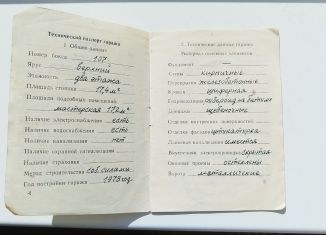 Технический паспорт гаража
1. Общие данные
Номер бокса 107
Ярус верхний
Этажность два этажа
Площадь стоянки 17,4 м²
Площади подсобных помещений
мастерская 17,2 м²
Наличие электроснабжения есть
Наличие водоснабжения есть
Наличие канализации нет
Наличие охранной сигнализации
Наличие страховки
Метод строительства соб. силами
Год постройки гаража 1973 год
4
2. Технические данные гаража
Материал основных элементов
Фундамент
Стены кирпичные
Перекрытие железобетонные
Кровля шиферная
Гидроизоляция рубероид на битуме
Полы щебеночные
Отделка внутренних поверхностей
Отделка фасадов штукатурка
Ливневая канализация имеется
Внутренняя электропроводка скрытая
Оконные проемы остеклены
Ворота металлические